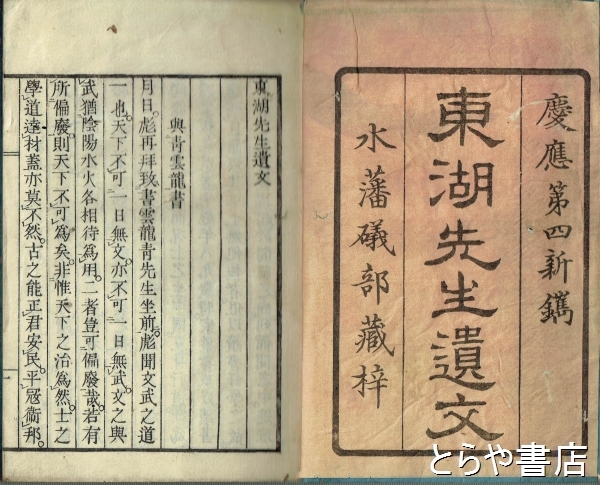 慶應第四新鐫
東湖先生遺文
水藩礒部藏梓
東湖先生遺文
與青雲龍書
月日。彪再拜致書雲龍青先生坐前。彪聞文武之道
一也。天下不可一日無文。亦不可一日無武。文之與
武。猶陰陽水火各相待為用。二者豈可偏廢哉。若有
所偏廢。則天下不可為矣。非惟天下之治為然。士之
學道達材。蓋亦莫不然。古之能正君安民。平冦衞邦。
一
とらや書店